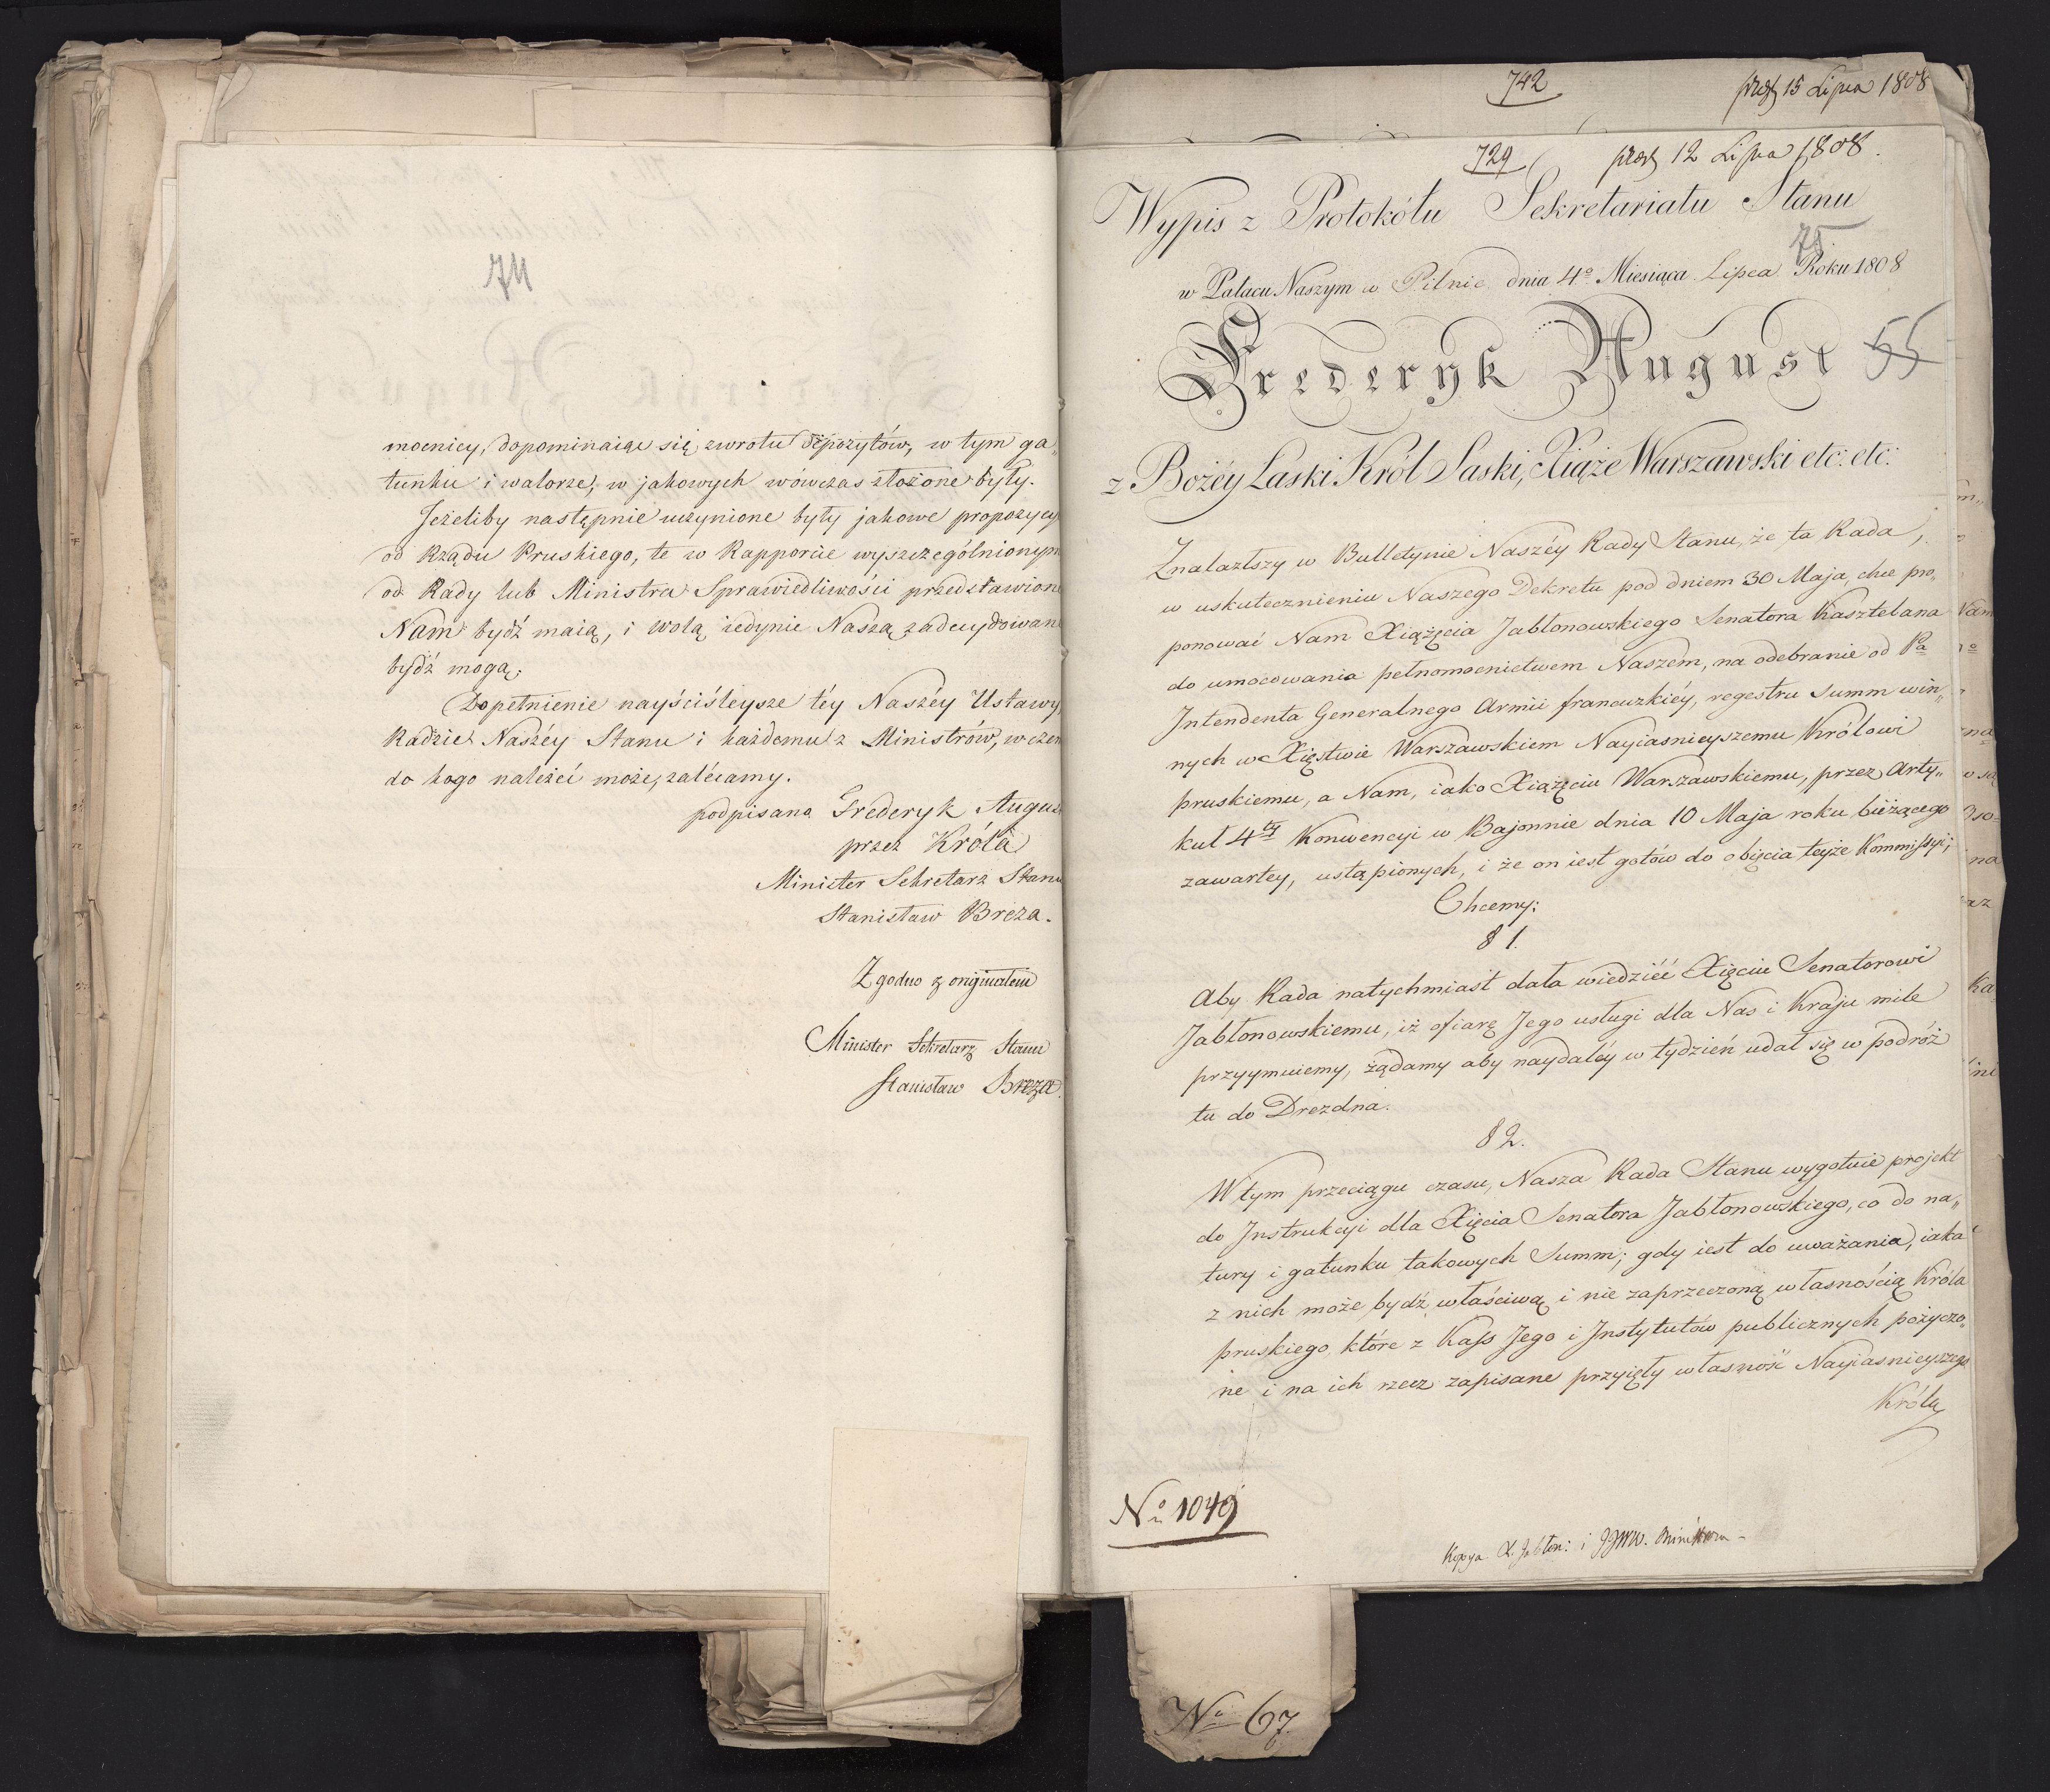 74
mocnicy, dopominaiąc się zwrotu depozytów, w tym ga„
tunku i walorze, w jakowych wówczas złożone były.
Jeżeliby następnie uczynione były jakowe propozycy
od Rządu Pruskiego, te w Rapporcie wyszczególnionym
od Rady lub Ministra Sprawiedliwości przedstawione
Nam bydź maią, i wolą iedynie Naszą zadecydowane
bydź mogą.
Dopełnienie nayściśleysze téy Naszéy Ustawy,
Radzie Naszéy Stanu i każdemu z Ministrów, w czem
do kogo należéć może, zalécamy.
podpisano Frederyk August
przez Króla
Minister Sekretarz Stanu
Stanisław Breza.
Zgodno z originałem
Minister Sekretarz Stanu
Stanisław Breza.
742
15 Lipca 1808
729 12 Lipca 1808.
Wypis z Protokółu Sekretariatu Stanu
75
w Pałacu Naszym w Pilnic dnia 4º Miesiąca Lipca Roku 1808
Frederyk August 55
z Bożéy Łaski Król Saski, Xiąże Warszawski etc: etc:
Znalazłszy w Bulletynie Naszéy Rady Stanu, że ta Rada,
w uskutecznieniu Naszego Dekretu pod dniem 30 Maja, chce pro„
ponować Nam Xiążęcia Jabłonowskiego Senatora Kasztelana
do umocowania pełnomocnictwem Naszem, na odebranie od Pa
Intendenta Generalnego Armii francuzkiéy, regestru Summ win„
nych w Xięstwie Warszawskiem Nayiasnieyszemu Królowi
pruskiemu, a Nam, iako Xiążęciu Warszawskiemu, przez Arty„
kuł 4ty Konwencyi w Bajonnie dnia 10 Maja roku bieżącego
zawartey, ustąpionych, i że on iest gotów do obięcia teyże Kommissyi;
Chcemy:
§ 1.
Aby Rada natychmiast dała wiedziéć Xięciu Senatorowi
Jabłonowskiemu, iż ofiarę Jego usługi dla Nas i Kraju mile
przyymuiemy, żądamy aby naydaléy w tydzień udał się w podróż
tu do Drezdna.
§ 2.
W tym przeciągu czasu, Nasza Rada Stanu wygotuie projekt
do Instrukcyi dla Xięcia Senatora Jabłonowskiego, co do na„
tury i gatunku takowych Summ; gdy iest do uważania, iaka
z nich może bydź właściwą i nie zaprzeczoną własnością Króla
pruskiego, które z Kass Jego i Instytutów publicznych pożyczo„
ne i na ich rzecz zapisane przyięły własność Nayiasnieyszego
Króla
No 1049
Kopya X. Jabłon: i JJWW. Ministrom
No 67.